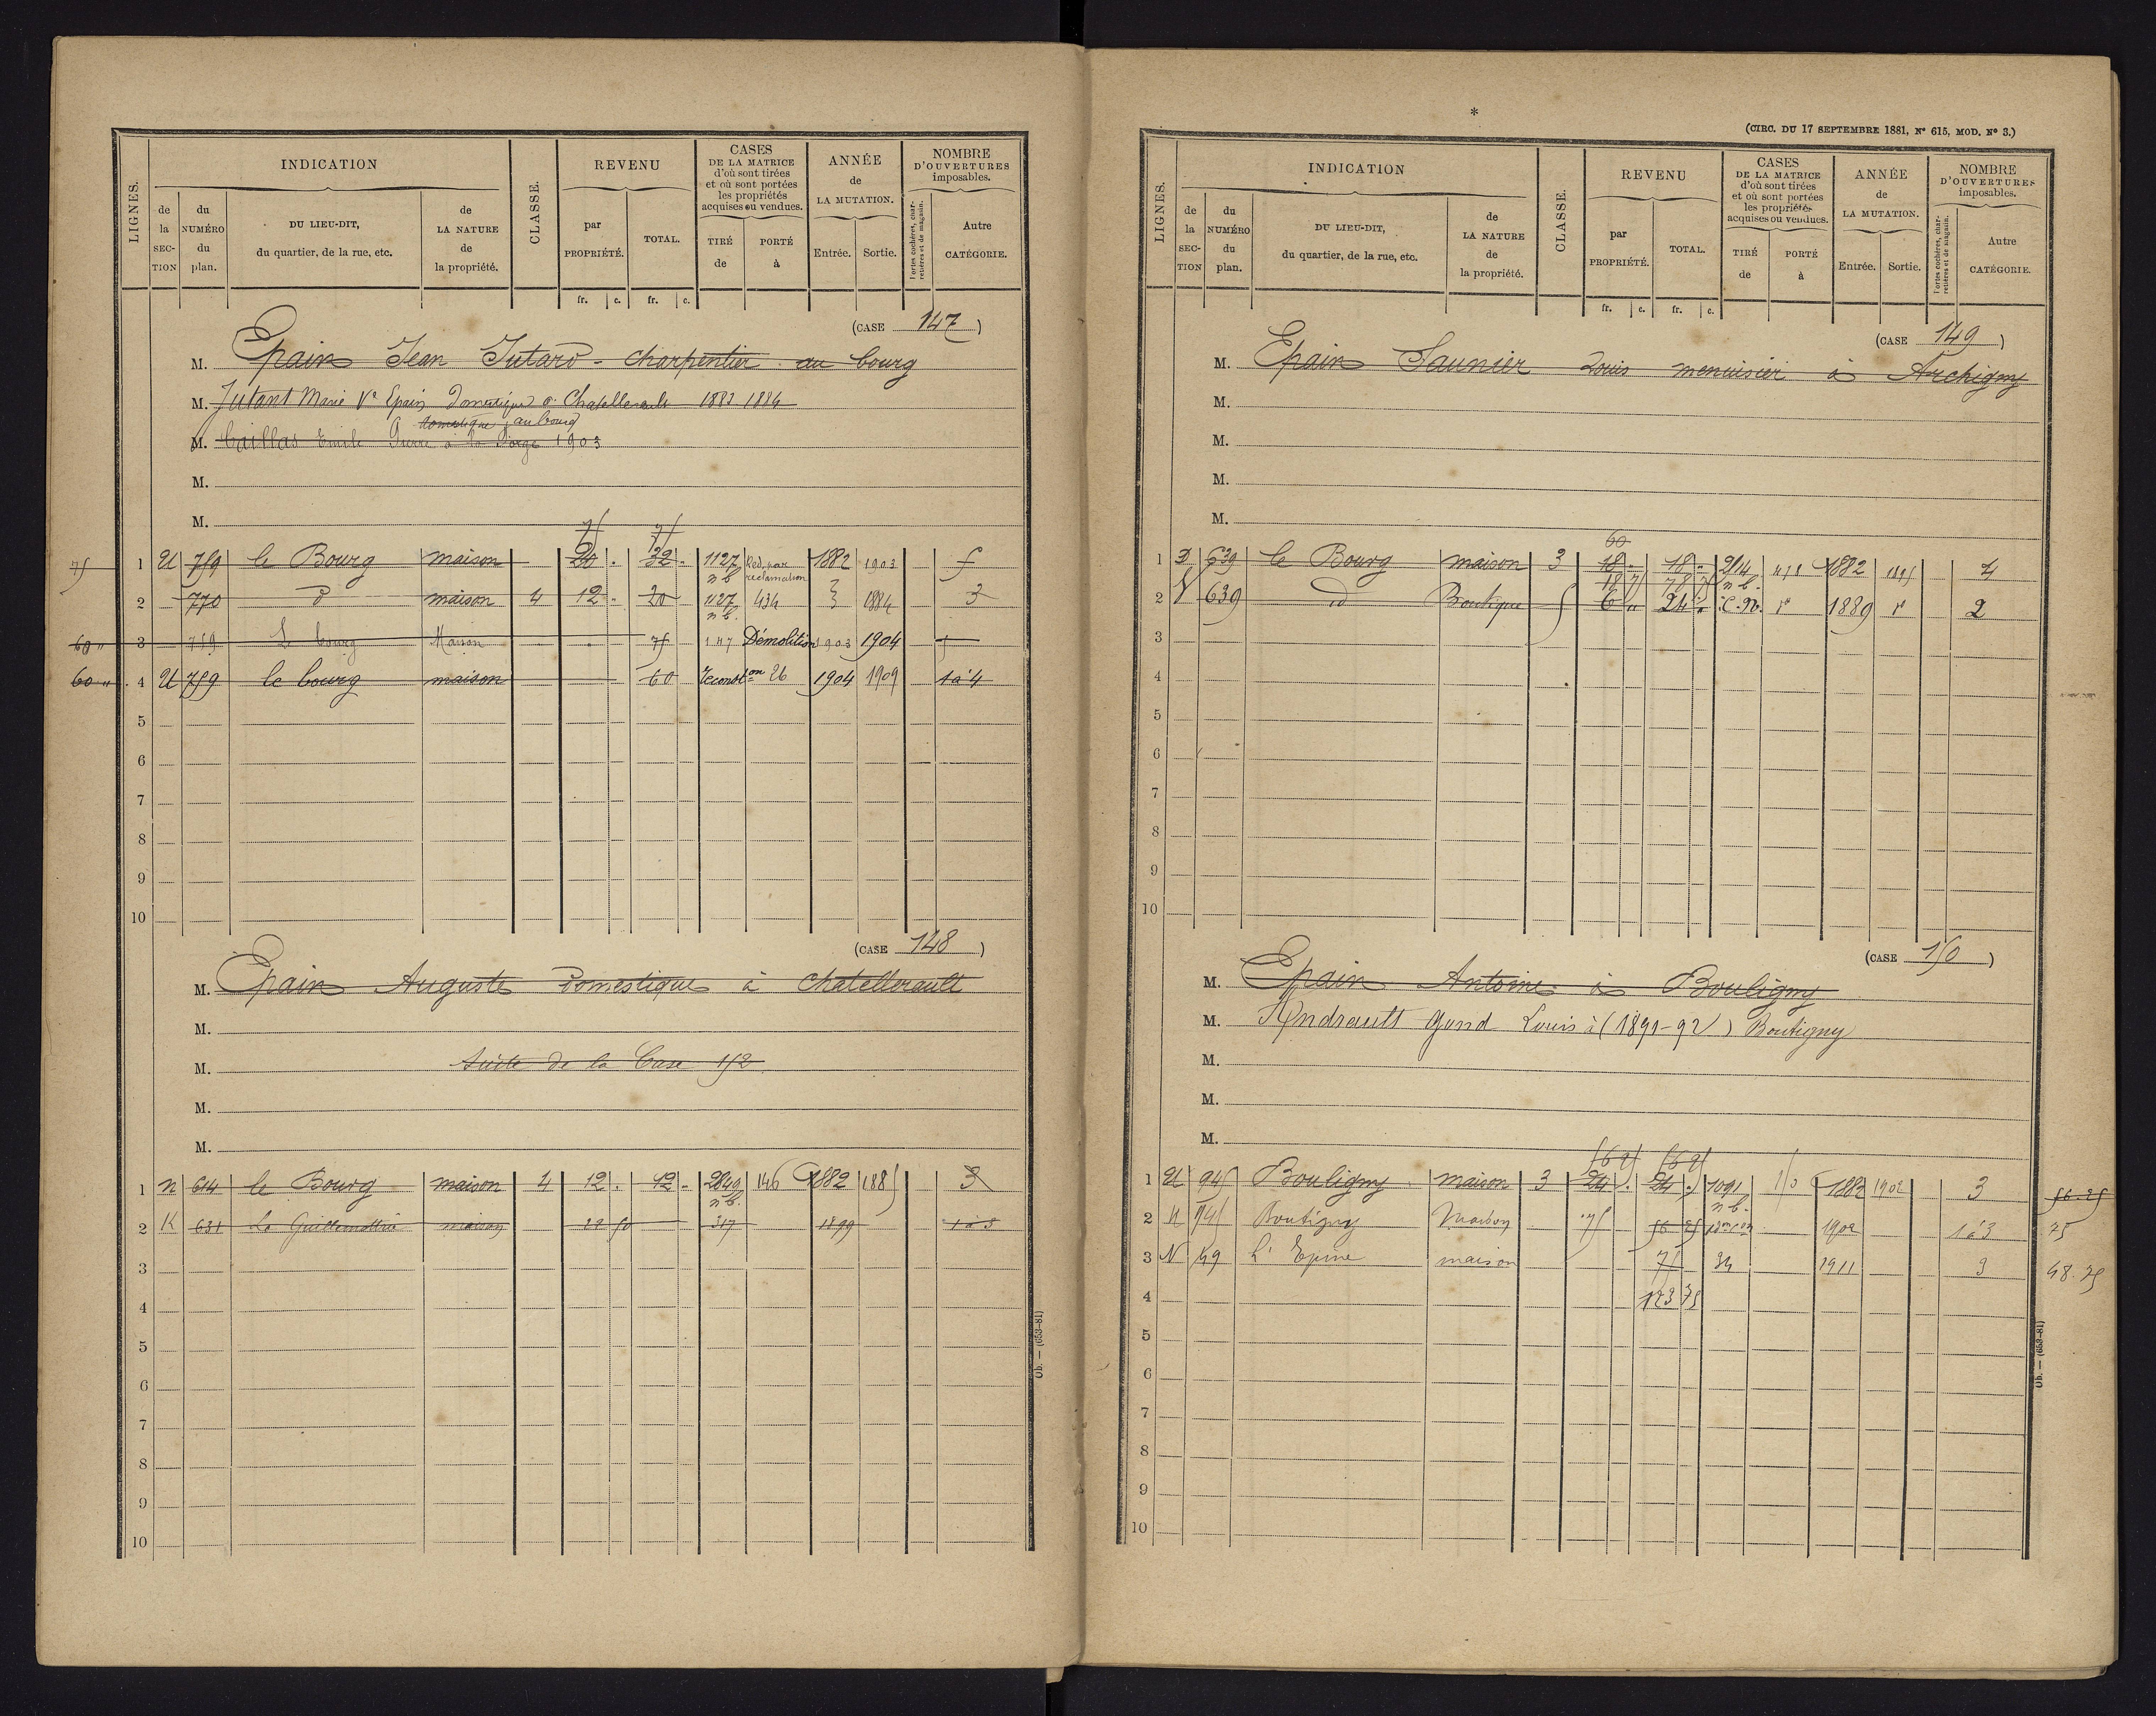 LIGNES.
INDICATION
de la SECTION
du NUMÉRO du plan.
DU LIEU-DIT, du quartier, de la rue, etc.
de LA NATURE de la propriété.
CLASSE.
REVENU
par PROPRIÉTÉ.
TOTAL.
CASES DE LA MATRICE d'où sont tirées et où sont portées les propriétés acquises ou vendues.
TIRÉ de
PORTÉ à
ANNÉE de LA MUTATION.
Entrée.
Sortie.
NOMBRE D'OUVERTURES imposables.
Portes cochères, charretières et de magasin.
Autre CATÉGORIE.
fr. c. fr. c.
(CASE 147)
M. Epain Jean Jutard - charpentier au bourg
M. Jutant Marie Ve Epain Domestique à Chatellerault 1883 1884
domestique au bourg
M. Caillas Emile Pierre à la Forge 1903
M.
M.
75 75
75 1 U 759 le Bourg maison 20 . 32 . 1127 n b. Réd. par réclamation 1882 1903 5
2 770 d maison 4 12 . 20 1127 n b. 434 1884 3
60 " 3 759 Le bourg Maison 75 147 Démolition 1903 1904 5
60 " 4 U 759 le bourg maison 60 reconston 26 1904 1909 1 à 4
5
6
7
8
9
10
(CASE 148)
M. Epain Auguste Domestique à Chatellerault
M.
M. Suite de la Case 152
M.
M.
1 n 614 le Bourg maison 4 12 . 12 . 2849 n b. 146 1882 1885 3
2 K 631 La Guillemottrie maison 22 50 317 1899 1 à 3
3
4
5
6
7
8
9
10
Ob. — (653-81)
*
(CIRC. DU 17 SEPTEMBRE 1881, No 615, MOD. No 3.)
LIGNES.
INDICATION
de la SECTION
du NUMÉRO du plan.
DU LIEU-DIT, du quartier, de la rue, etc.
de LA NATURE de la propriété.
CLASSE.
REVENU
par PROPRIÉTÉ.
TOTAL.
CASES DE LA MATRICE d'où sont tirées et où sont portées les propriétés acquises ou vendues.
TIRÉ de
PORTÉ à
ANNÉE de LA MUTATION.
Entrée.
Sortie.
NOMBRE D'OUVERTURES imposables.
Portes cochères, charretières et de magasin.
Autre CATÉGORIE.
fr. c. fr. c.
(CASE 149)
M. Epain Saunier Louis menuisier à Archigny
M.
M.
M.
M.
60
1 D 639 le Bourg maison 3 18 . 18 . 2114 n b. 1882 4
18 75 78 75
2 N 639 id Boutique 5 6 " 24 " C. N. 1889 2
3
4
5
6
7
8
9
10
(CASE 150)
M. Epain Antoine à Bouligny
M. Andrault Gond Louis à (1891-92) Boutigny
M.
M.
M.
56 25 56 25
1 U 945 Bouligny maison 3 24 . 24 . 1091 n b. 1882 1902 3 56.25
2 U 945 Boutigny Maison 75 56 25 1902 1 à 3 75
3 N 49 L'Epine maison 75 34 1911 3 48.75
4 123 75
5
6
7
8
9
10
Ob. — (653-81)